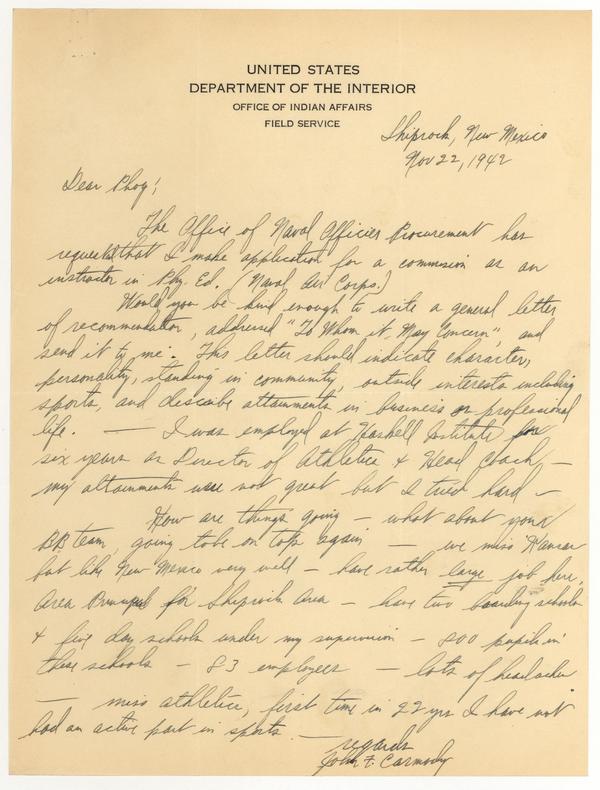 UNITED STATES
DEPARTMENT OF THE INTERIOR
OFFICE OF INDIAN AFFAIRS
FIELD SERVICE
Shiprock, New Mexico
Nov 22, 1942
Dear Phog',
The Office of Naval Officier Procurement has
requested that I make application for a commision as an
instructor in Phy. Ed. (Naval Air Corps.)
Would you be kind enough to write a general letter
of recommendation, addressed "To Whom it May Concern", and
send it to me. This letter should indicate character,
personality, standing in community, outside interests including
sports, and describe attainments in business or professional
life. — I was employed at Haskell Institute for
six years as Director of Athletics & Head Coach —
my attainments were not great but I tried hard —
How are things going — what about your
B.B. team, going to be on top again — we miss Kansas
but like New Mexico very well — have rather large job here,
Area Principal for Shiprock Area — have two boarding schools
& five day schools under my supervision — 800 pupils in
these schools — 83 employees — lots of headaches
— miss athletics, first time in 22 yrs I have not
had an active part in sports. —
regards
John F. Carmody